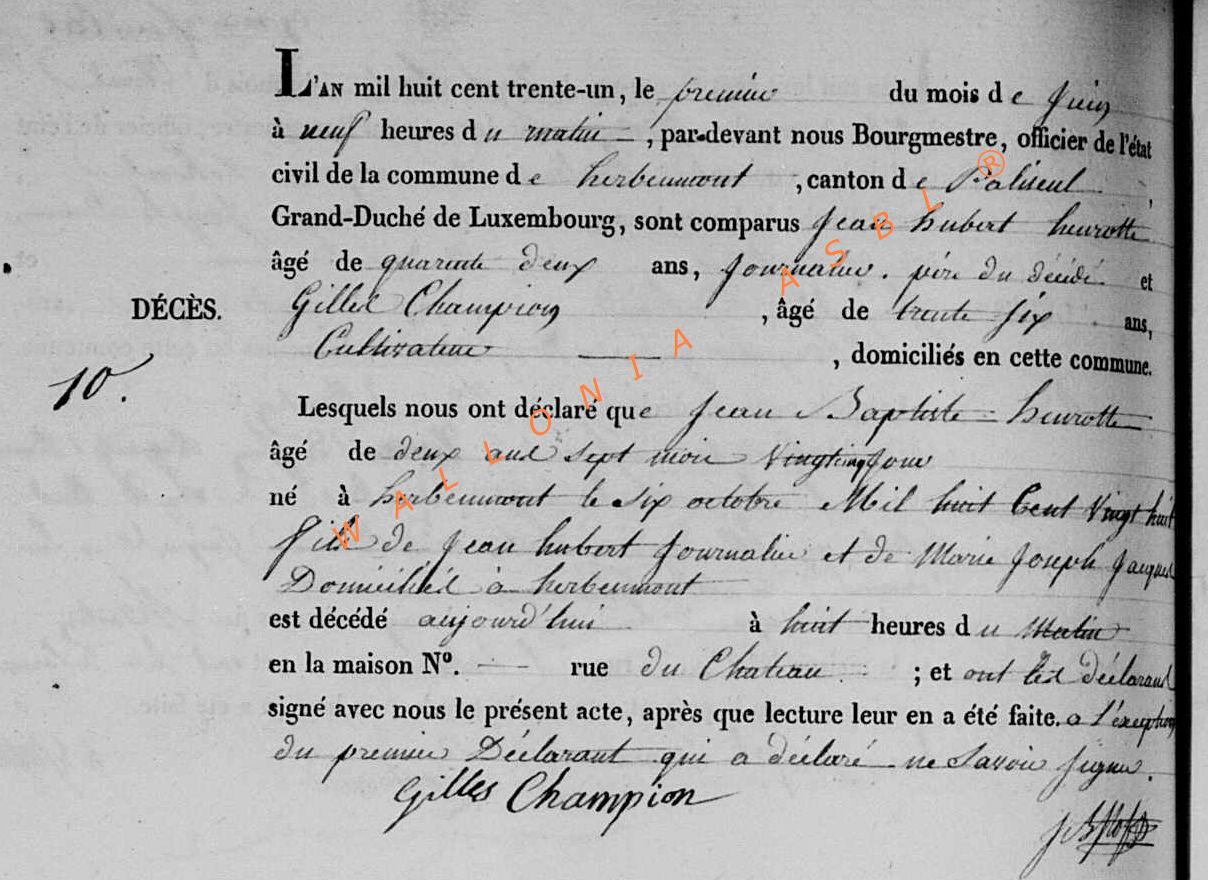 L'AN mil huit cent trente-un, le premier du mois de Juin
à neuf heures du matin, par-devant nous Bourgmestre, officier de l'état
civil de la commune de herbeumont, canton de Paliseul,
Grand-Duché de Luxembourg, sont comparus Jean hubert heurotte
âgé de quarente deux ans, Journalier. père du décédé et
Gilles Champion, âgé de trente six ans,
DÉCÈS.
Cultivateur, domiciliés en cette commune.
10.
Lesquels nous ont déclaré que Jean Baptiste heurotte
âgé de deux ans sept mois Vingt cinq Jour
né à herbeumont le six octobre Mil huit Cent Vingt huit
fils de Jean hubert Journalier et de Marie Joseph Jacques
Domiciliés à herbeumont
est décédé aujourd'hui à huit heures du Matin
en la maison N°. rue du Chateau ; et ont les déclarans
signé avec nous le présent acte, après que lecture leur en a été faite. a l'exeption
du premier Déclarant qui a déclaré ne Savoir signer.
Gilles Champion
WALLONIA ASBL ®